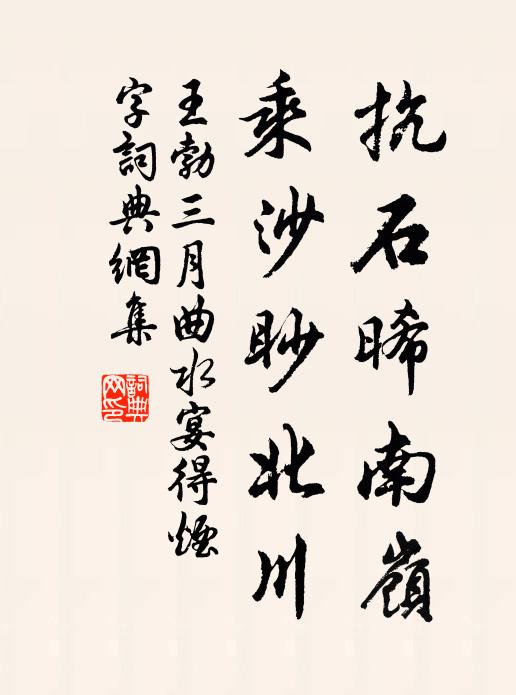 抗石晞南嶺
乘沙眇北川
王勃三月曲水宴得煙
字詞典網集
詞典
网印